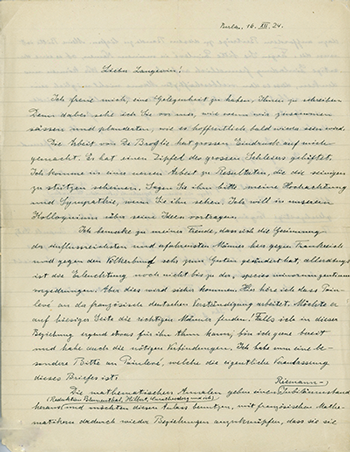 Berlin, 16. XII. 24.
Lieber Langevin!
Ich freue mich, eine Gelegenheit zu haben, Ihnen zu schreiben.
Denn dabei sehe ich Sie vor mir, wie wenn wir zusammen
sässen und plauderten, wie es hoffentlich bald wieder sein wird.
Die Arbeit von De Broglie hat grossen Eindruck auf mich
gemacht. Er hat einen Zipfel des grossen Schleiers gelüftet.
Ich komme in einer neuen Arbeit zu Resultaten, die die seinigen
zu stützen scheinen. Sagen Sie ihm bitte meine Hochachtung
und Sympathie, wenn Sie ihn sehen. Ich will in unserem
Kolloquium über seine Ideen vortragen.
Ich bemerke zu meiner Freude, dass sich die Gesinnung
der einflussreichsten und erfahrensten Männer hier gegen Frankreich
und gegen den Völkerbund sehr zum Guten geändert hat, allerdings
ist die Erleuchtung noch nicht bis zu der
vorgedrungen. Aber dies wird sicher kommen. Ich höre dass Pain-
levé an der französisch deutschen Verständigung arbeitet. Möchte er
auf hiesiger Seite die richtigen Männer finden! Falls ich in dieser
Beziehung irgend etwas für ihn thun kann, bin ich gern bereit
und habe auch die nötigen Verbindungen. Ich hab nun eine be-
sondere Bitte an Painlevé, welche die eigentliche Veranlassung
dieses Briefes ist:
Die mathematischen Annalen geben einen Riemann-Jubiläumsband
(Redaktion Blumenthal, Hilbert, Carathéodory und)
heraus und möchten diesen Anlass benutzen, mit französischen Mathe-
matikern dadurch wieder Beziehungen anzuknüpfen, dass sie sie